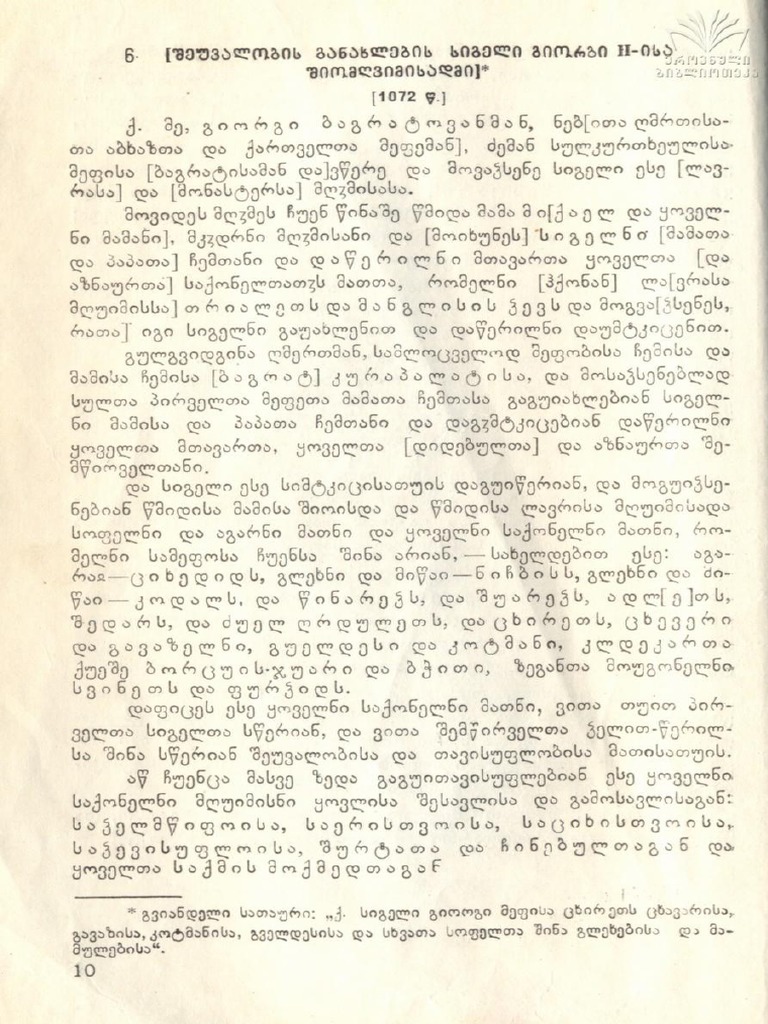 ეროვნული
ბიბლიოთეკა
6. [შეუვალობის განახლების სიგელი გიორგი II-ისა
შიომღვიმისადმი]*
[1072 წ.]
ქ. მე, გიორგი ბაგრატოვანმან, ნებ[ითა ღმრთისა-
თა აბხაზთა და ქართველთა მეფემან], ძემან სულკურთხეულისა
მეფისა [ბაგრატისამან და]ვწერე და მოვაჴსენე სიგელი ესე [ლავ-
რასა] და [მონასტერსა] მღჳმისასა.
მოვიდეს მღჳმეს ჩუენ წინაშე წმიდა მამა მი[ქაელ და ყოველ-
ნი მამანი], მკჳდრნი მღჳმისანი და [მოიხუნეს] სიგელნი [მამათა
და პაპათა] ჩემთანი და დაწერილნი მთავართა ყოველთა [და
აზნაურთა] საქონელთათჳს მათთა, რომელნი [ჰქონან] ლა[ვრასა
მღუიმისსა] თრიალეთს და მანგლისის ჴევს და მოგვა[ჴსენეს,
რათა] იგი სიგელნი გაუახლენით და დაწერილნი დაუმტკიცენით.
გულგვიდგინა ღმერთმან, სამლოცველოდ მეფობისა ჩემისა და
მამისა ჩემისა [ბაგრატ] კურაპალატისა, და მოსაჴსენებლად
სულთა პირველთა მეფეთა მამათა ჩემთასა გაგუიახლებიან სიგელ-
ნი მამისა და პაპათა ჩემთანი და დაგჳმტკიცებიან დაწერილნი
ყოველთა მთავართა, ყოველთა [დიდებულთა] და აზნაურთა შე-
მწიოველთანი.
და სიგელი ესე სიმტკიცისათუის დაგუიწერიან, და მოგუიჴსე-
ნებიან წმიდისა მამისა შიოისდა და წმიდისა ლავრისა მღუიმისადა
სოფელნი და აგარნი მათნი და ყოველნი საქონელნი მათნი, რო-
მელნი სამეფოსა ჩუენსა შინა არიან, — სახელდებით ესე: აგა-
რაჲ—ციხედიდს, გლეხნი და მიწაი—ნიჩბისს, გლეხნი და მი-
წაი — კოდალს, და წინარეჴს, და შუარეჴს, ადლ[ე]თს,
შედარს, და ძუელ ღრდულეთს, და ცხირეთს, ცხევერი
და გავაზელნი, გუელდესი და კოტმანი, კლდეკართა
ქუეშე ბორცუის-ჯუარი და ბჭითი, ზეგანთა მოუგონელნი
სვინეთს და ფურჴიდს.
დაფიცეს ესე ყოველნი საქონელნი მათნი, ვითა თუით პირ-
ველთა სიგელთა სწერიან, და ვითა შემწირველთა ჴელით-წერილ-
სა შინა სწერიან შეუვალობისა და თავისუფლობისა მათისათუის.
აწ ჩუენცა მასვე ზედა გაგუითავისუფლებიან ესე ყოველნი
საქონელნი მღუიმისნი ყოვლისა შესავლისა და გამოსავლისაგან:
საჴელმწიფოისა, საერისთვოისა, საციხისთვოისა,
საჴევისუფლოისა, შურტათა და ჩინებულთაგან და
ყოველთა საქმის მოქმედთაგან
* გვიანდელი სათაური: „ქ. სიგელი გიოოგი მეფისა ცხირეთს ცხავარისა,
გავაზისა, კოტმანისა, გველდესისა და სხვათა სოფელთა შინა გლეხებისა და მა-
მულებისა“.
10